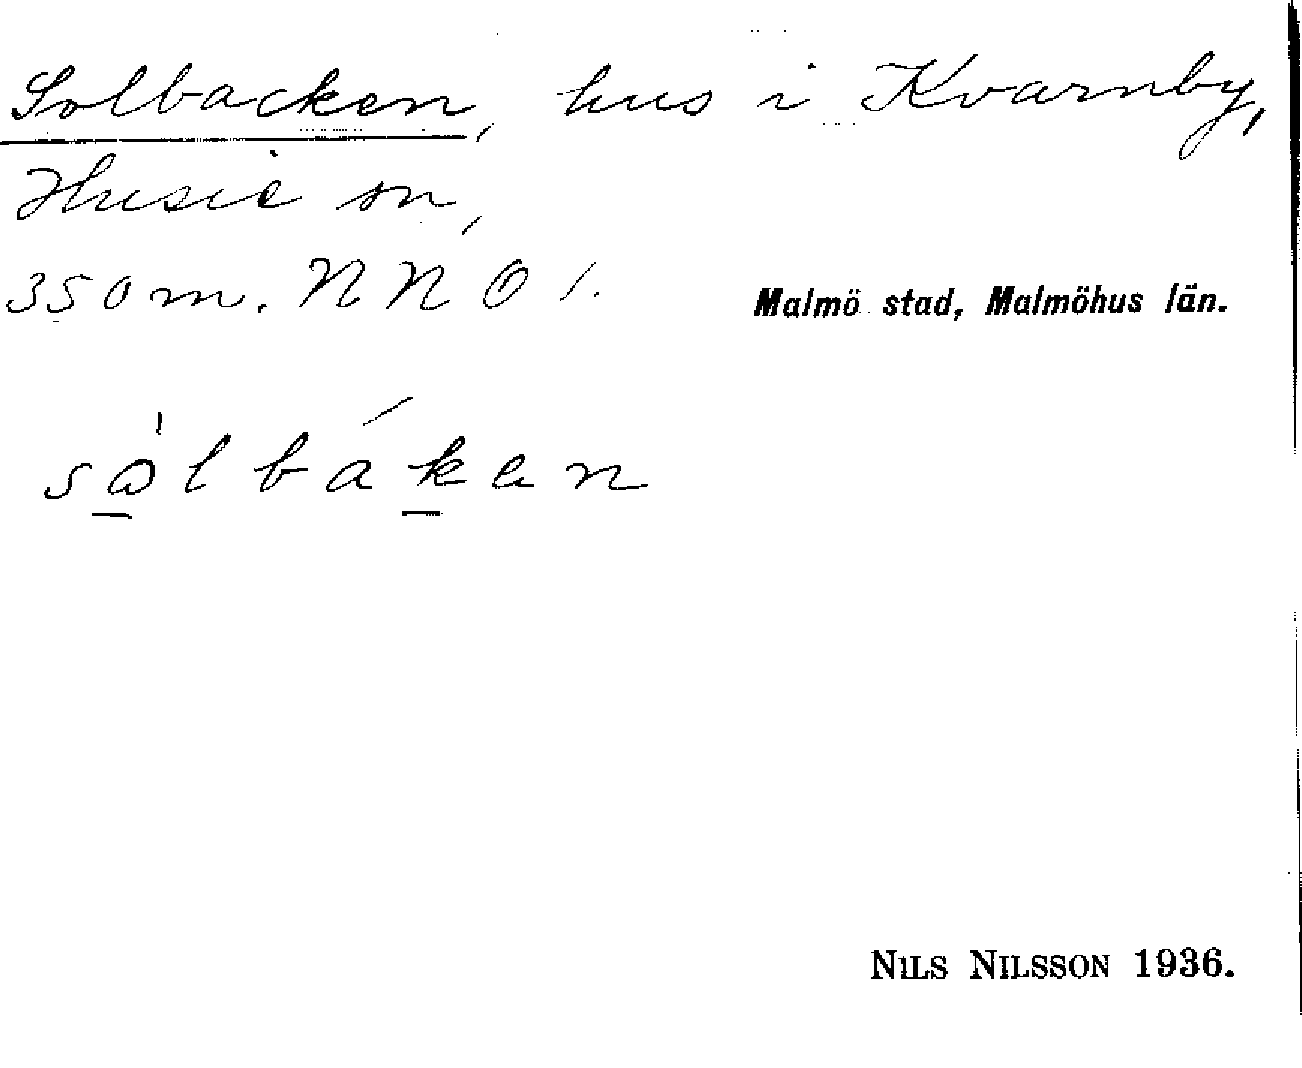 Solbacken, hus i Kvarnby,
Husie sn,
350 m. NNO /.
Malmö stad, Malmöhus län.
sòlbáken
NILS NILSSON 1936.